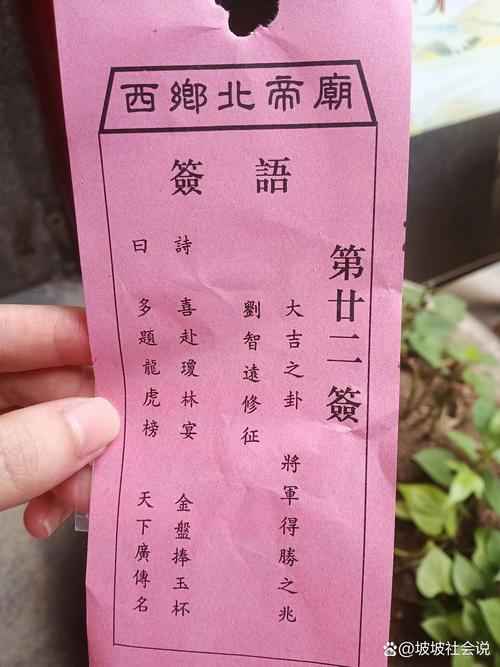 西鄉北帝廟
簽語
第廿二簽
大吉之卦 將軍得勝之兆
劉智遠修征
詩 喜赴瓊林宴 金盤捧玉杯
曰 多題龍虎榜 天下廣傳名
@坡坡社会说